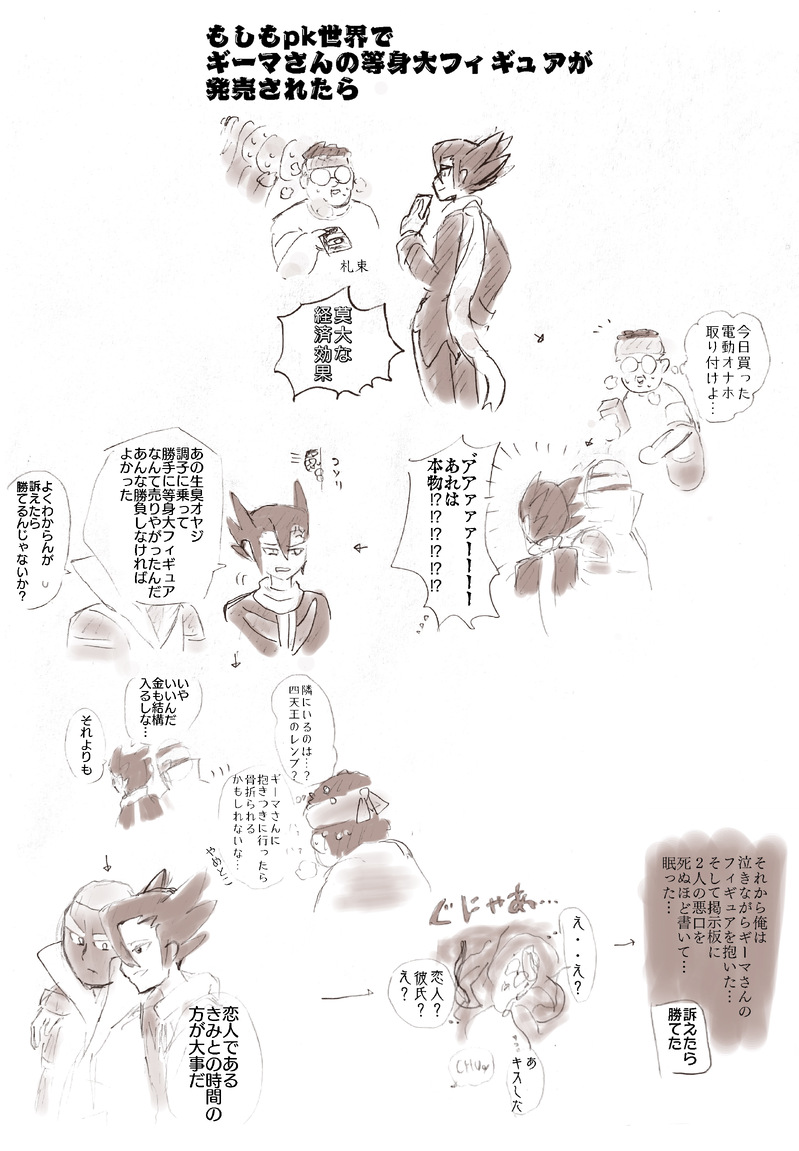 もしもpk世界で
ギーマさんの等身大フィギュアが
発売されたら
札束
莫大な
経済効果
今日買った
電動オナホ
取り付けよ…
ア゛アァァァーーーー
あれは
本物!?!?!?!?!?
コソリ
あの生臭オヤジ
調子に乗って
勝手に等身大フィギュア
なんて売りやがったんだ
あんな勝負しなければ
よかった
よくわからんが
訴えたら
勝てるんじゃないか?
いや
いいんだ
金も結構
入るしな…
それよりも
隣にいるのは…?
四天王のレンブ?
ギーマさんに
抱きつきに行ったら
骨折られる
かもしれないな…
やめとこ
恋人である
きみとの時間の
方が大事だ
ぐにゃあぁ…
え・・え?
恋人?
彼氏?
え?
あ
キスした
CHU
それから俺は
泣きながらギーマさんの
フィギュアを抱いた…
そして掲示板に
2人の悪口を
死ぬほど書いて…
眠った…
訴えたら
勝てた